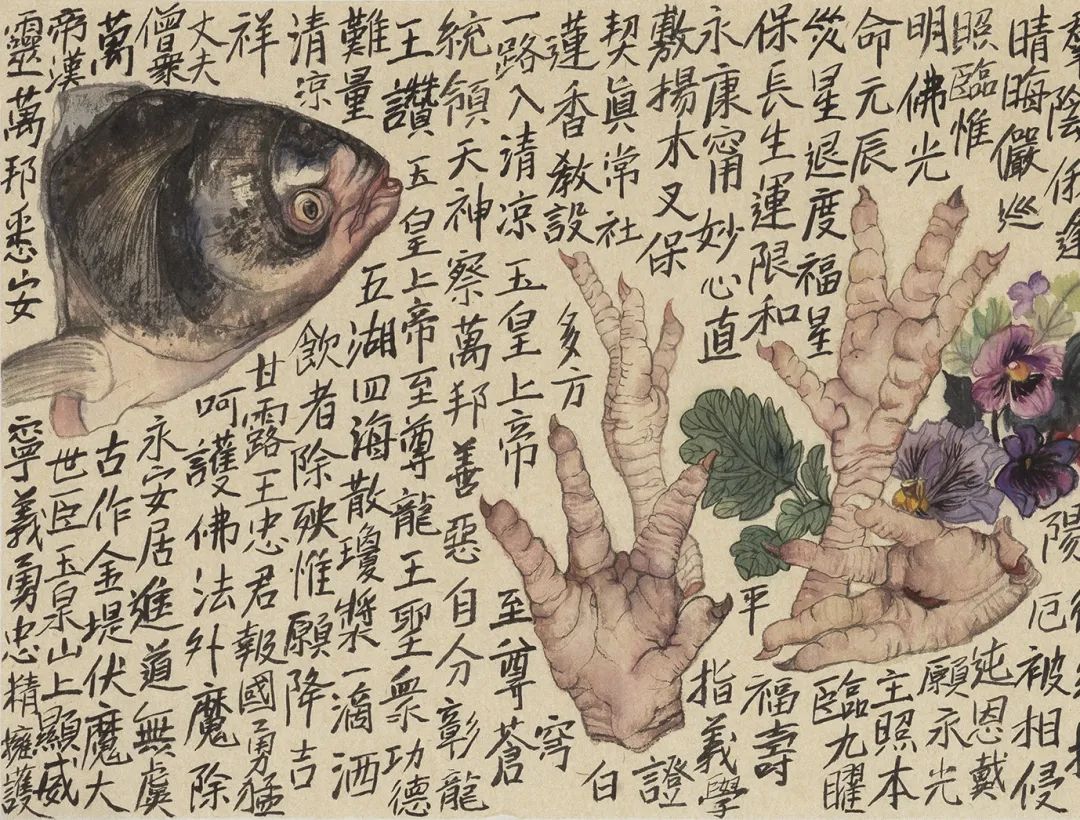 羣陰俄逢陽厄被相侵
晴晦儼巡迍恩戴
照臨惟願永光
明佛光主照本
命元辰
災星退度福星臨九曜
保長生運限和平福壽
永康甯妙心直指義學
敷揚木叉保證
契眞常社白
蓮香教設多方
一路入清凉玉皇上帝至尊蒼穹
統領天神察萬邦善惡自分彰龍
王讚玉皇上帝至尊龍王聖衆功德
難量五湖四海散瓊漿一滴洒
清凉飲者除殃惟願降吉
祥甘露王忠君報國勇猛
丈夫呵護佛法外魔除
僧衆永安居進道無虞
萬古作金堤伏魔大
帝漢世臣玉泉山上顯威
靈萬邦悉安寧義勇忠精擁護